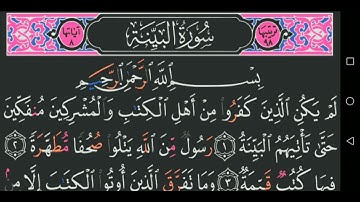 ترتيبها ٩٨ سُورَةُ الْبَيِّنَةِ آياتها ٨
بِسْمِ اللَّهِ الرَّحْمَٰنِ الرَّحِيمِ
لَمْ يَكُنِ الَّذِينَ كَفَرُوا مِنْ أَهْلِ الْكِتَٰبِ وَالْمُشْرِكِينَ مُنفَكِّينَ
حَتَّىٰ تَأْتِيَهُمُ الْبَيِّنَةُ ١ رَسُولٌ مِّنَ اللَّهِ يَتْلُوا صُحُفًا مُّطَهَّرَةً ٢
فِيهَا كُتُبٌ قَيِّمَةٌ ٣ وَمَا تَفَرَّقَ الَّذِينَ أُوتُوا الْكِتَٰبَ إِلَّا مِن